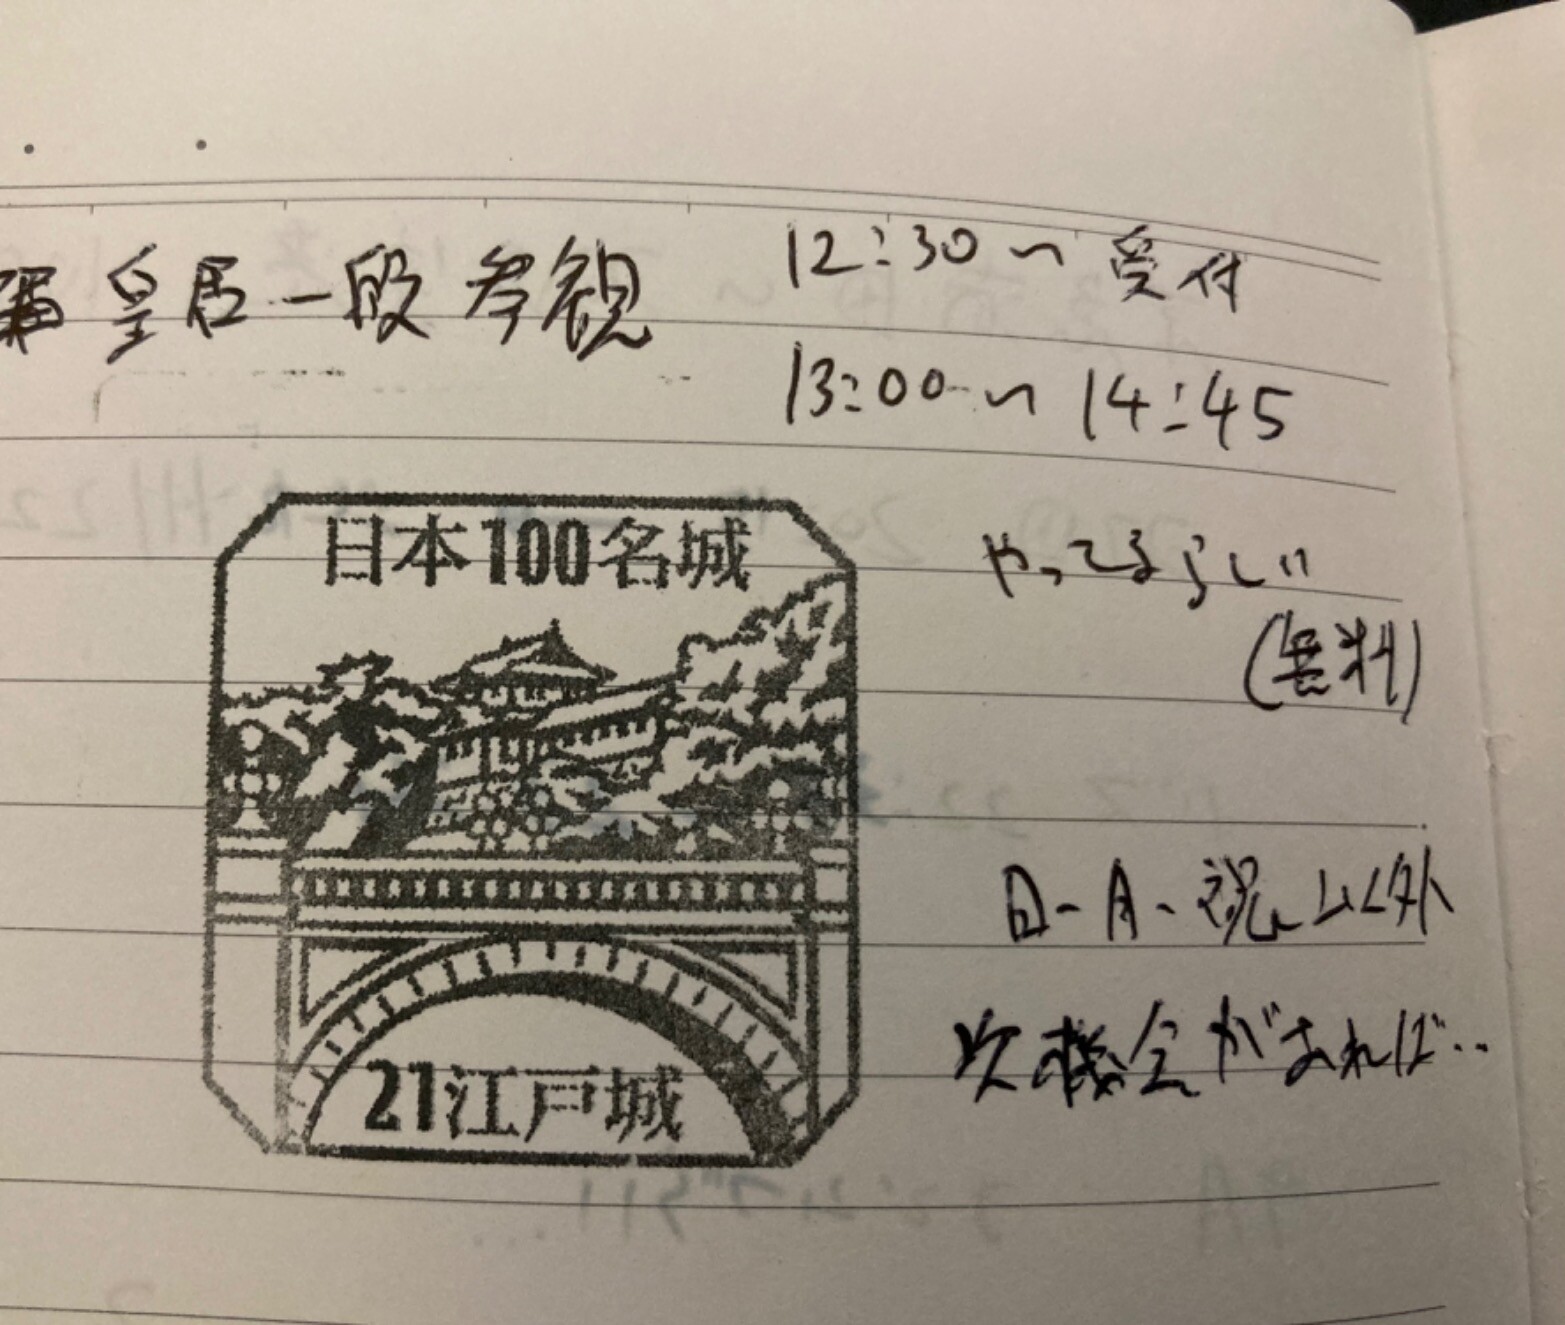 皇居一般参観
12:30〜受付
13:00〜14:45
日本100名城
やってるらしい
(無料)
日・月・祝以外
次機会があれば‥
21江戸城